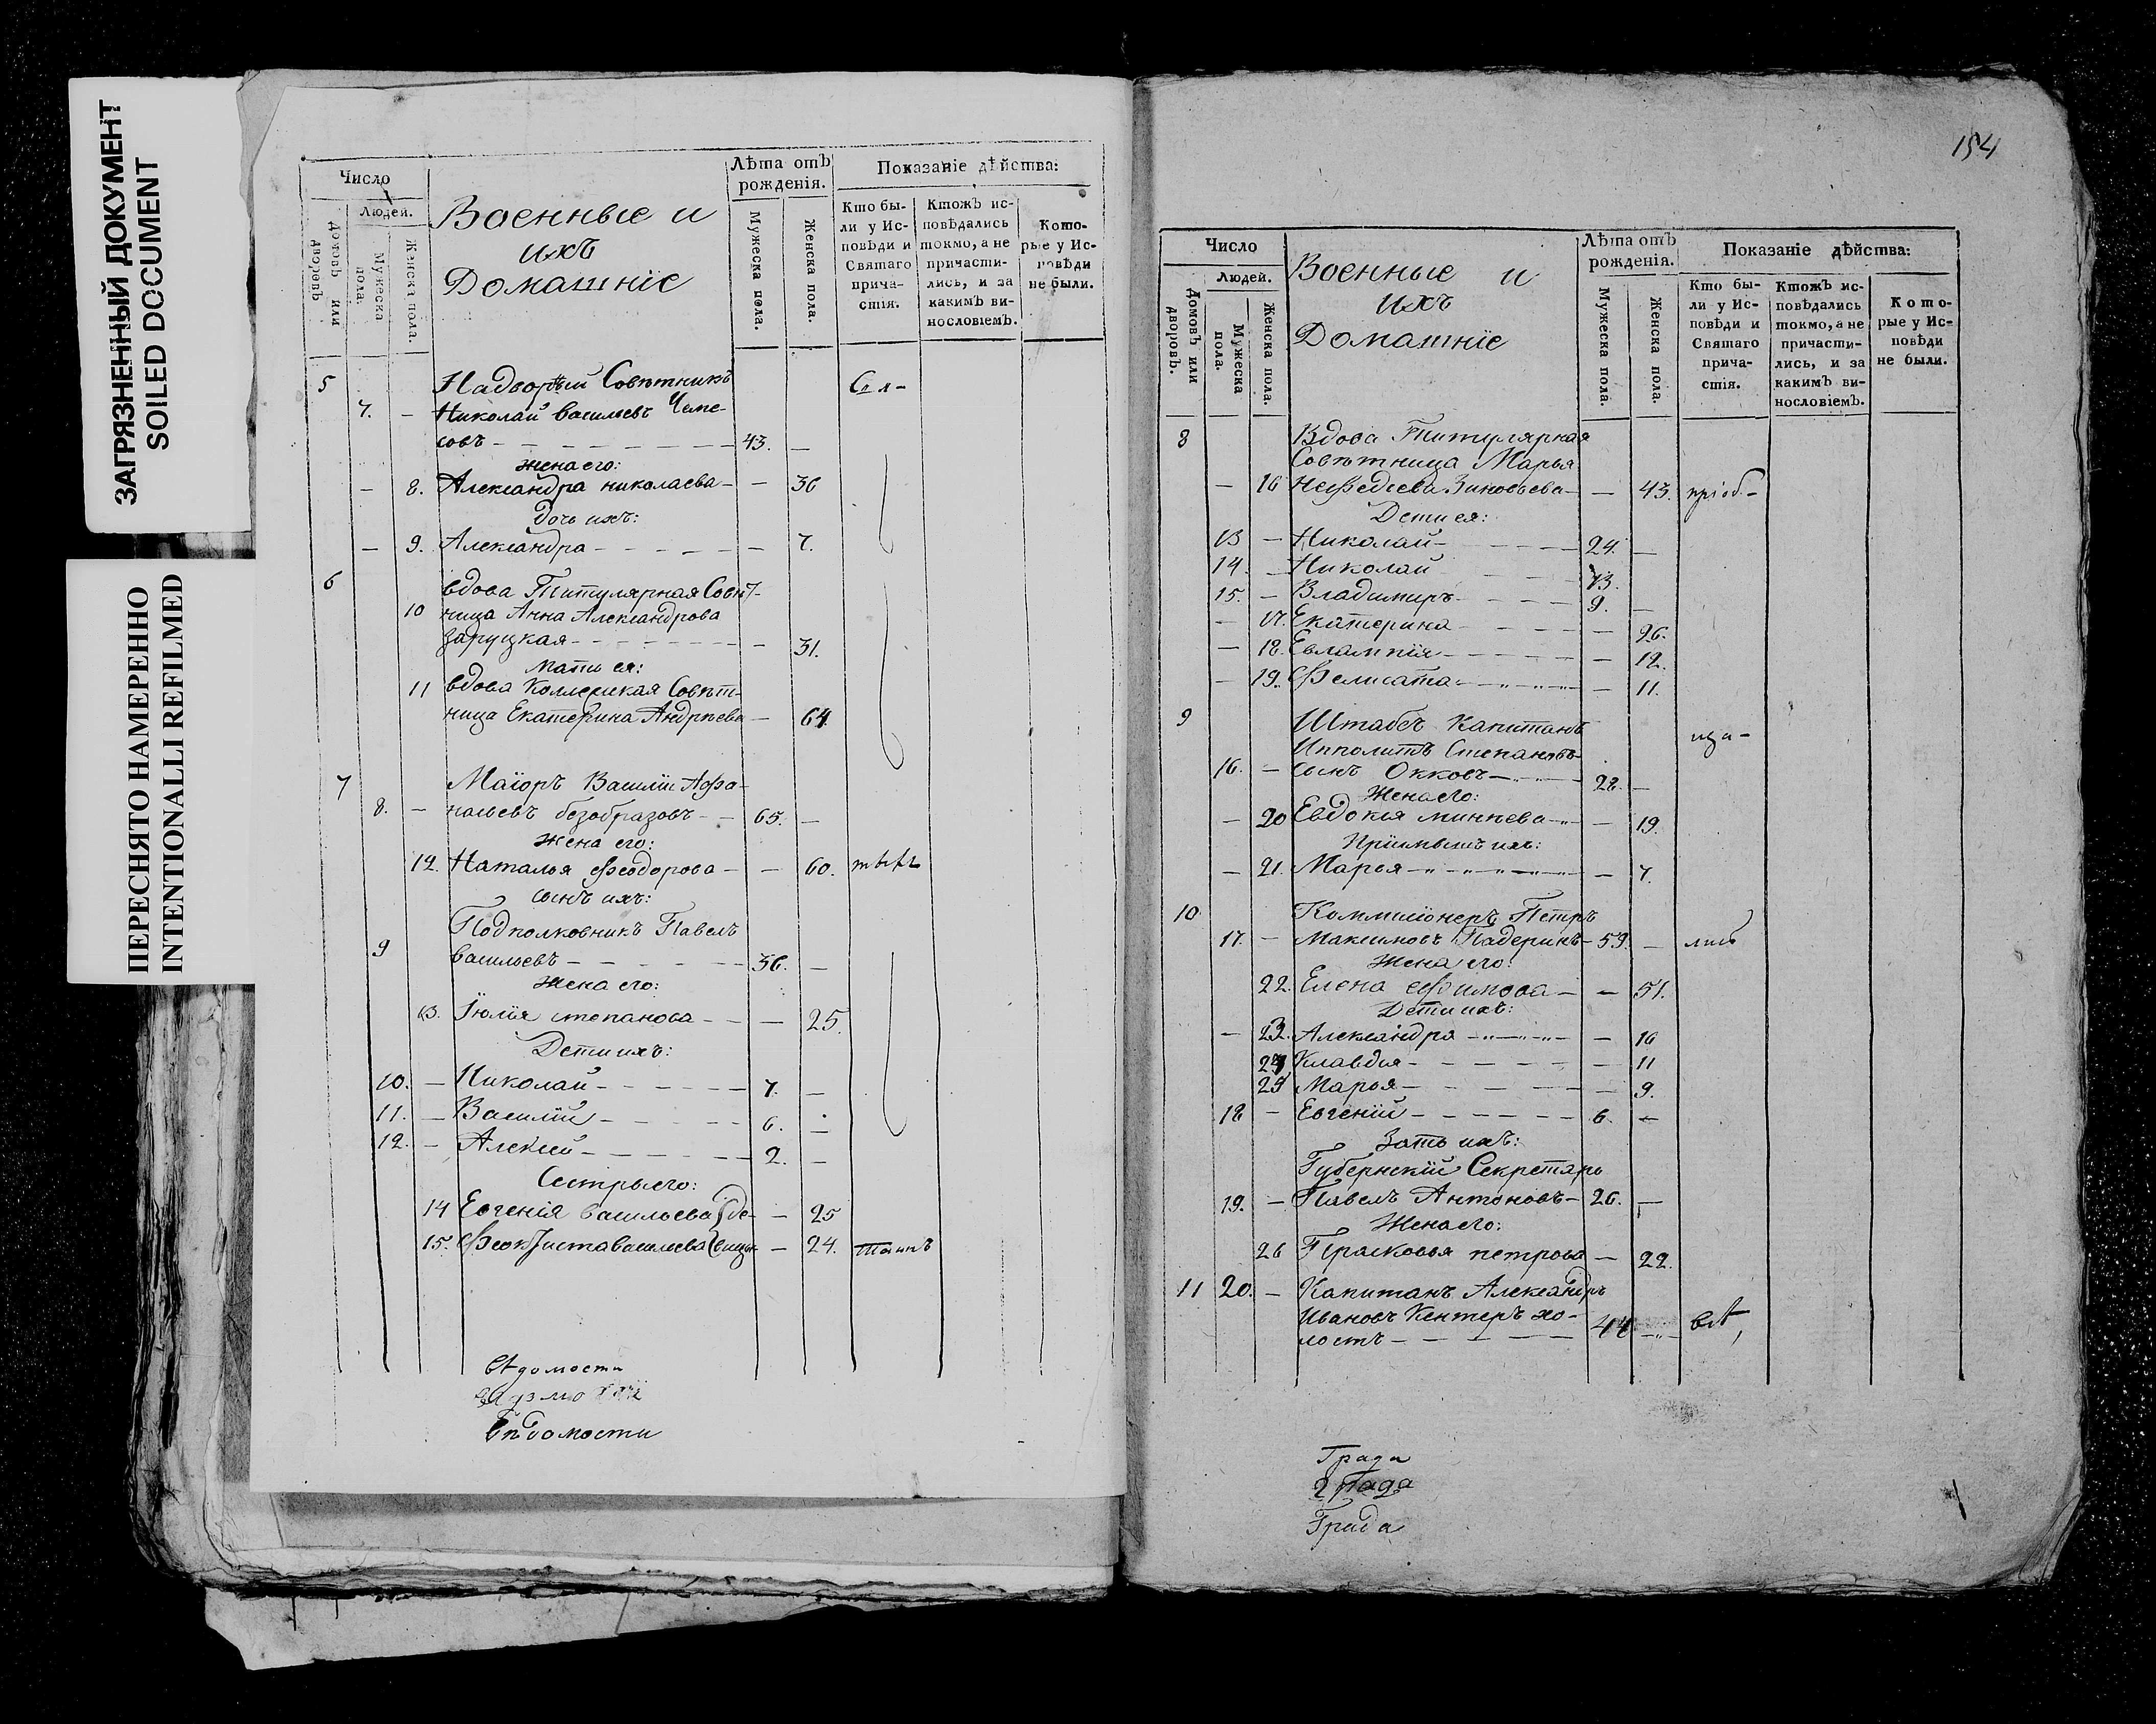 ЗАГРЯЗНЕННЫЙ ДОКУМЕНТ
SOILED DOCUMENT
ПЕРЕСНЯТО НАМЕРЕННО
INTENTIONALLI REFILMED
Число
Людей.
Домовъ или дворовъ
Мужеска пола.
Женска пола.
Военные и
ихъ
Домашніе
Лѣта отъ
рожденія.
Мужеска пола.
Женска пола.
Показаніе дѣйства:
Кто бы-
ли у Ис-
повѣди и
Святаго
прича-
стія.
Ктожъ ис-
повѣдались
токмо, а не
причасти-
лись, и за
какимъ ви-
нословіемъ.
Кото-
рые у Ис-
повѣди
не были.
5 Надворный Совѣтникъ
7. - Николай Васильевъ Чеме-
совъ 43. -
жена его:
- 8. Александра николаева - 36
дочь ихъ:
- 9. Александра - 7.
6 вдова Титулярная Совѣт-
10 ница Анна Александрова
Заруцкая - 31.
мать ея:
11 вдова Коллежская Совѣт-
ница Екатерина Андрѣева - 64
7 Маіоръ Василій Афа-
8. - насьевъ безобразовъ - 65. -
Жена его:
12. Наталья Феодорова - 60.
сынъ ихъ:
Подполковникъ Павелъ
9 васильевъ 36. -
Жена его:
13. Iюлія степанова - 25.
Дети ихъ:
10. - Николай 7. -
11. - Василій 6. -
12. - Алексей 2. -
Сестры его:
14 Евгенія васильева де- - 25
15. Феоктиста васильева вицы - 24.
вѣдомости
Вѣдомости
154
Число
Людей.
Домовъ или дворовъ.
Мужеска пола.
Женска пола.
Военные и
ихъ
Домашніе
Лѣта отъ
рожденія.
Мужеска пола.
Женска пола.
Показаніе дѣйства:
Кто бы-
ли у Ис-
повѣди и
Святаго
прича-
стія.
Ктожъ ис-
повѣдались
токмо, а не
причасти-
лись, и за
какимъ ви-
нословіемъ.
Кото-
рые у Ис-
повѣди
не были.
8 Вдова Титулярная
Совѣтница Марья
- 16 Нефедьева Зиновьева - 43. пріоб-
Дети ея:
13 - Николай 24. -
14. - Николай 13.
15. - Владимиръ 9. -
- 17. Екатерина - 26.
- 18. Евлампія - 12.
- 19. Фелисата - 11.
9 Штабсъ Капитанъ
Ипполитъ Степановъ ща-
16. - сынъ Окковъ 28. -
Жена его:
- 20 Евдокія минѣева - 19.
Приймышъ ихъ:
- 21. Марья - 7.
10 Коммисіонеръ Петръ
17. - Максимовъ Падеринъ 59. - лись
Жена его:
22. Елена ефимова - 51.
Дети ихъ:
- 23. Александра - 16
24 Клавдія - 11
25 Марья - 9.
18 - Евгеній 6. -
Зять ихъ:
Губернскій Секретарь
19. - Павелъ Антоновъ 26. -
Жена его:
26 Прасковья петрова - 22.
11 20. - Капитанъ Александръ
Ивановъ Кентеръ хо-
лостъ 44 всѣ
Града
Града
Града